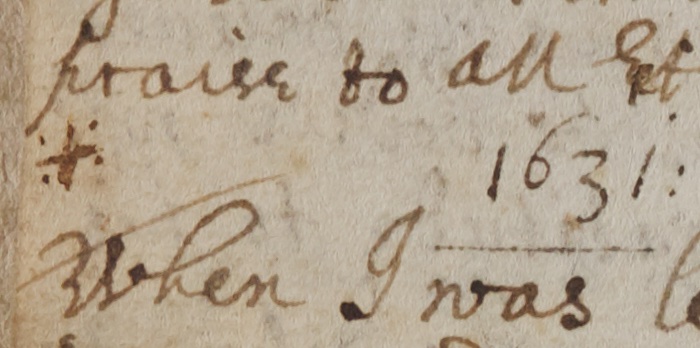 praise to all
1631:
When I was